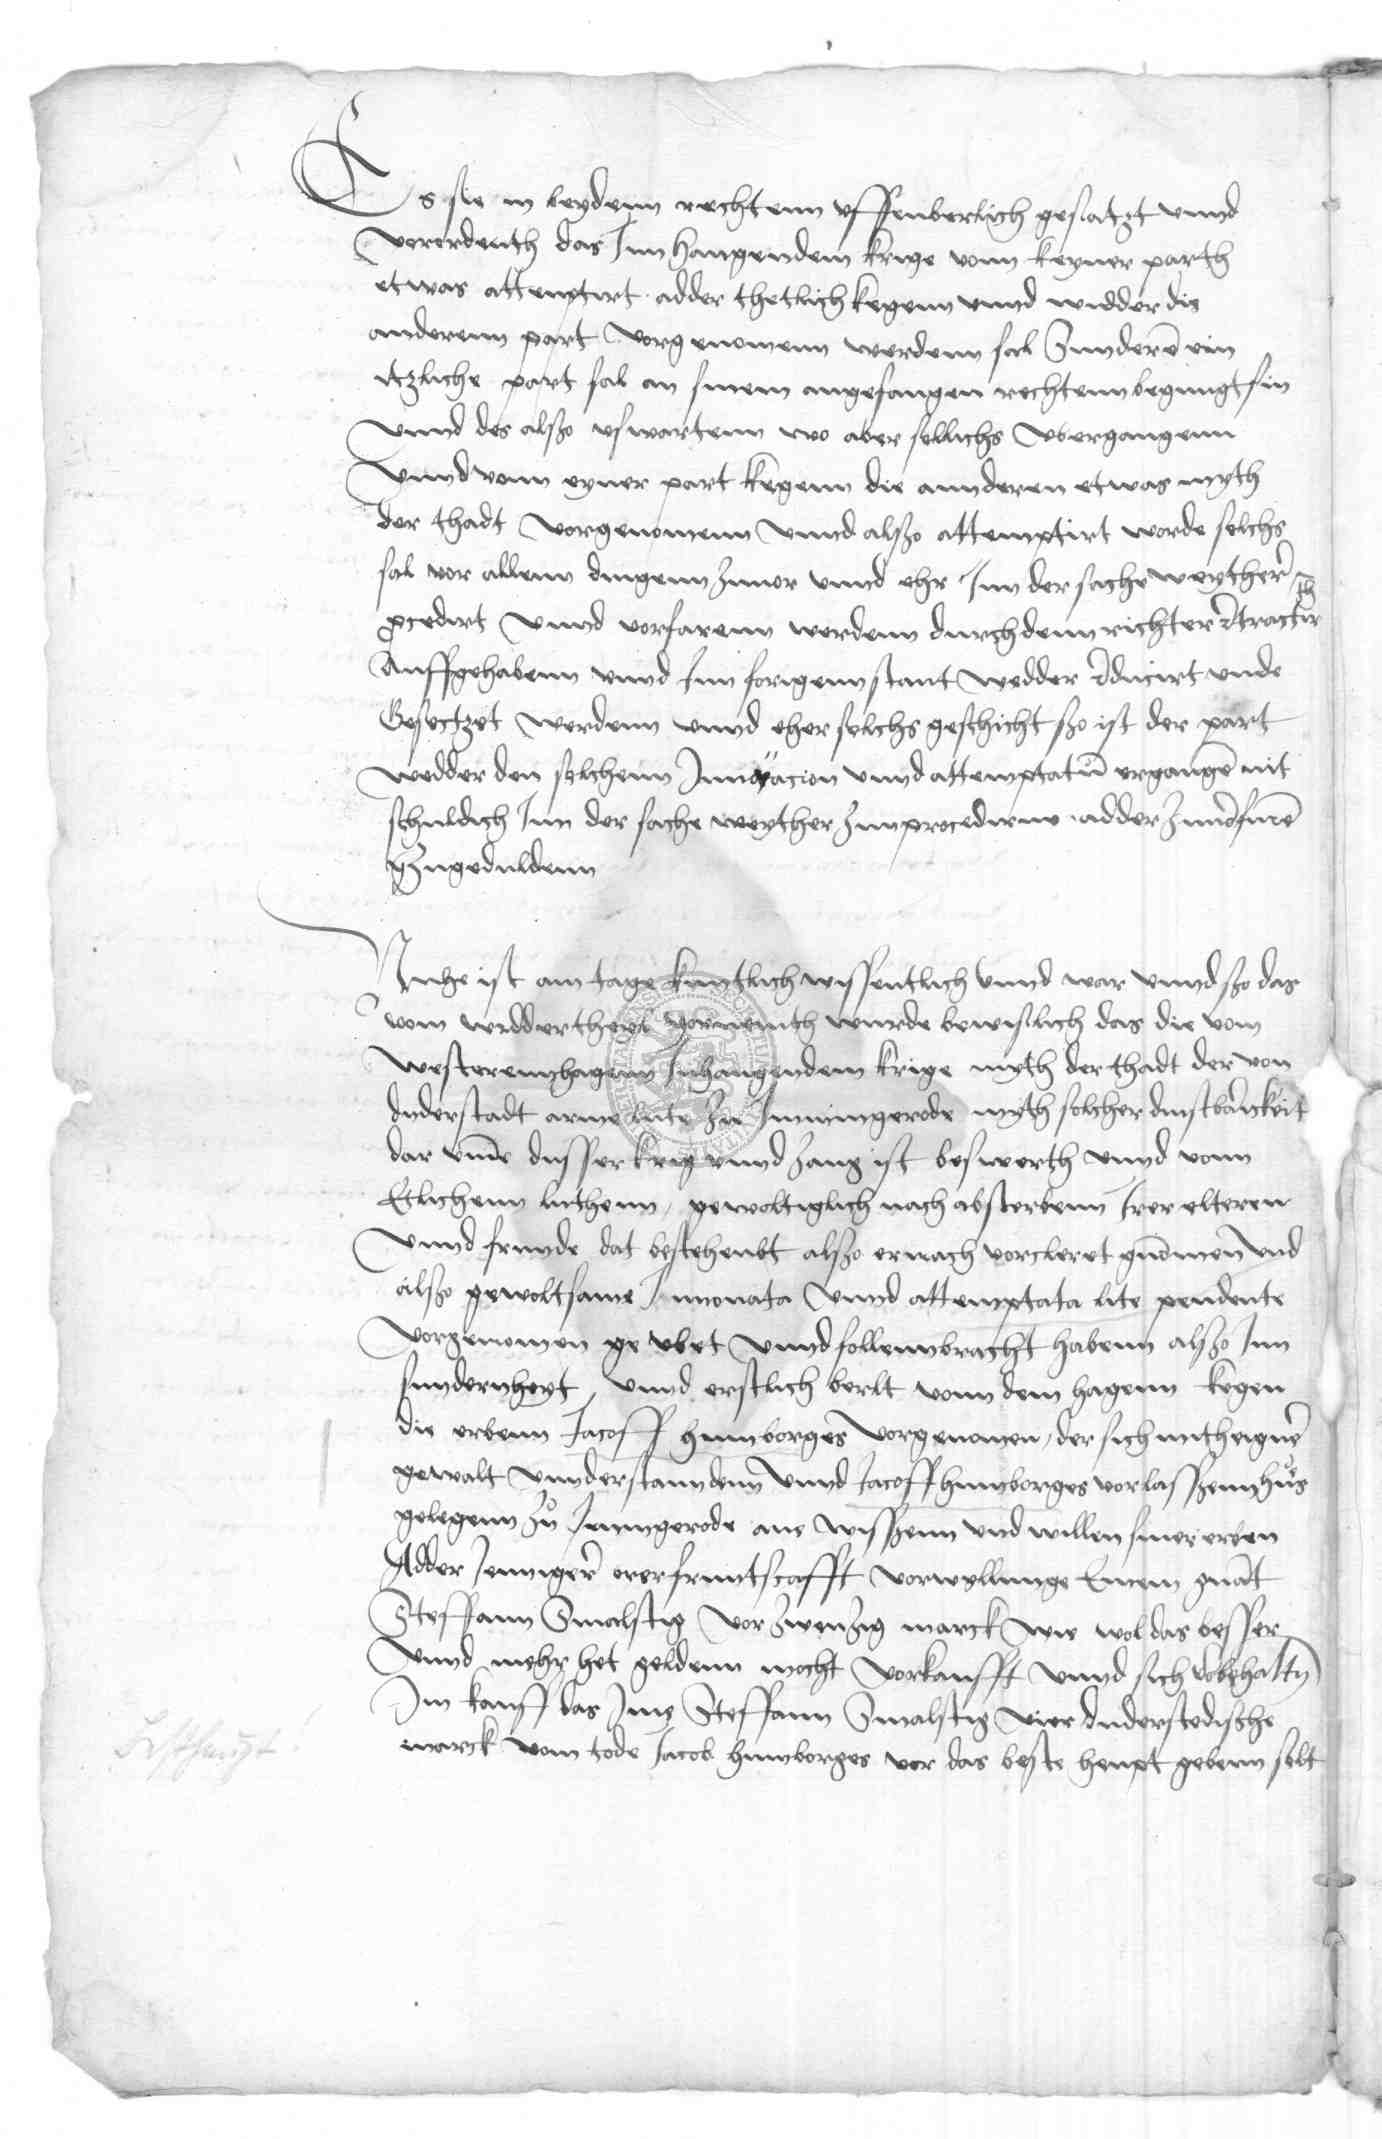 Es sie in beydenn rechtenn uffenberlich gesatzt unnd
vorordenth das Inn hangendem krige vonn keyner parth
etwas attemptirt adder thetlich kegenn unnd widder die
anderenn part vorgenomenn werdenn sal Sunderē ein
itzliche part sal an sinem angefangen rechtenn begnugt sin
unnd des alßo uswartenn wo aber sollichs ubergangenn
unnd vonn eyner part kegenn die annderen etwas myth
der thadt vorgenomenn unnd alßo attemptirt worde solchs
sal vor allenn dingenn zuuor unnd ehr Inn der sache weyther
pcedirt unnd vorfarenn werdenn durch denn richter retractirth
Auffgehabenn unnd Inn forigenn stant wedder reducirt unde
Gesectzet werdenn unnd eher solchs geschicht ßo ist der part
wedder den solchenn Innovacion unnd attemptatū ergangē nit
schuldich Inn der sache weyther zuuprocedirnn adder
zugeduldenn
Nuhe ist am tage kuntlich wissentlich unnd war unnd ßo das
vom weddertheyl vorneinth wurde bewißlich das die vom
Westerennhagenn Inhangendem krige myth der thadt der von
duderstadt arme lute zu Inningerode myth solcher dinstbarickeit
dar umē dusser krig unnd zang ist beswerth unnd vonn
Etlichenn luthenn, gewoltiglich nach absterbenn Irer elteren
unnd frunde dat besteheubt alßo ernach vorcleret gnōmen und
alßo gewoltsame Innouata unnd attemptata lite pendente
vorgenomen ge ubet unnd follennbracht habenn alßo Inn
sundernheyt, unnd erstlich berlt vonn dem hagenn kegen
die erbenn Jacoff hunborges vorgenomen, der sich mith eigner
gewalt unnderstanndenn unnd Jacoff hunborges vorlasszenn hus
gelegenn zu Inningerode ane wisszenn und willen siner erben
Adder Jenniger erer fruntscafft vorwyllunge Einem gnāt
Steffann Smalstig vor zwenzig marck wie wol das besser
unnd mehr het geldenn mocht vorkaufft unnd sich vorbehaltn
Im kauff das Ime Steffann Smalstig vier duderstedische
marck vom tode Jacob hunborges vor das beste heupt gebenn solt
Besthaupt!